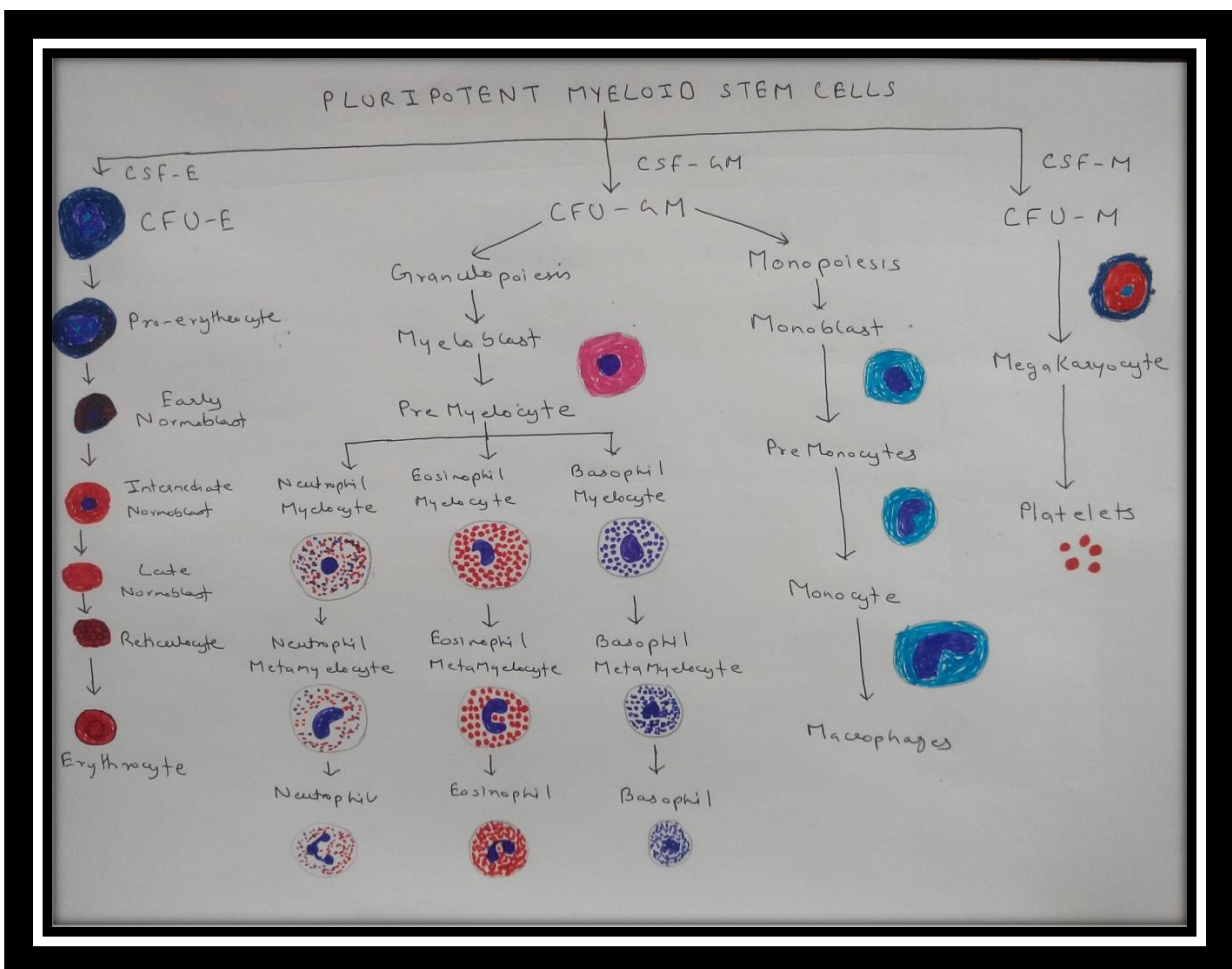 PLURIPOTENT MYELOID STEM CELLS
CSF-E
CFU-E
Pro-erytheocyte
Early
Normoblast
Intermediate
Normoblast
Late
Normoblast
Reticulocyte
Erythrocyte
CSF-GM
CFU-GM
Granulopoiesis
Myeloblast
PreMyelocyte
Neutrophil
Myelocyte
Neutrophil
Metamyelocyte
Neutrophil
Eosinophil
Myelocyte
Eosinophil
MetaMyelocyte
Eosinophil
Basophil
Myelocyte
Basophil
MetaMyelocyte
Basophil
Monopoiesis
Monoblast
PreMonocytes
Monocyte
Macrophages
CSF-M
CFU-M
MegaKaryocyte
Platelets